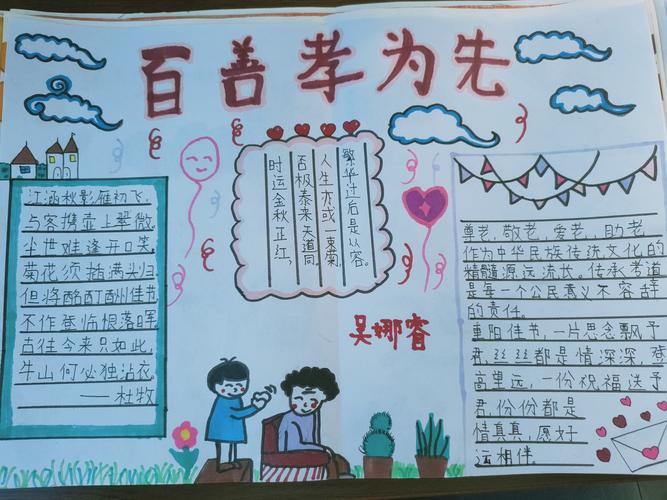 百善孝为先
江涵秋影雁初飞,
与客携壶上翠微.
尘世难逢开口笑,
菊花须插满头归.
但将酩酊酬佳节
不作登临根落晖
古往今来只如此,
牛山何必独沾衣.
——杜牧
繁华过后是从容。
人生亦或一束菊,
否极泰来天道同。
时运金秋正红,
吴娜睿
尊老,敬老,爱老,助老
作为中华民族传统文化的
精髓源远流长。传承孝道
是每一个公民意义不容辞
的责任。
重阳佳节,一片思念飘予
君,丝丝都是情深深,登
高望远,一份祝福送予
君,份份都是
情真真,愿好
运相伴。